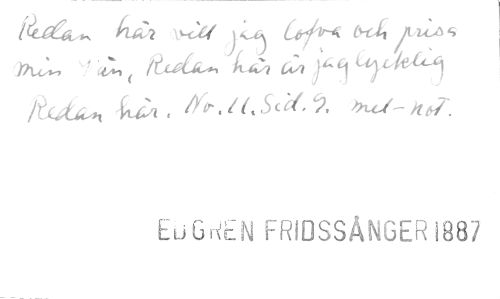 Redan här vill jag lofva och prisa
min vän, Redan här är jag lycklig
Redan här. No. 11. Sid. 9. mel-not.
EDGREN FRIDSSÅNGER 1887